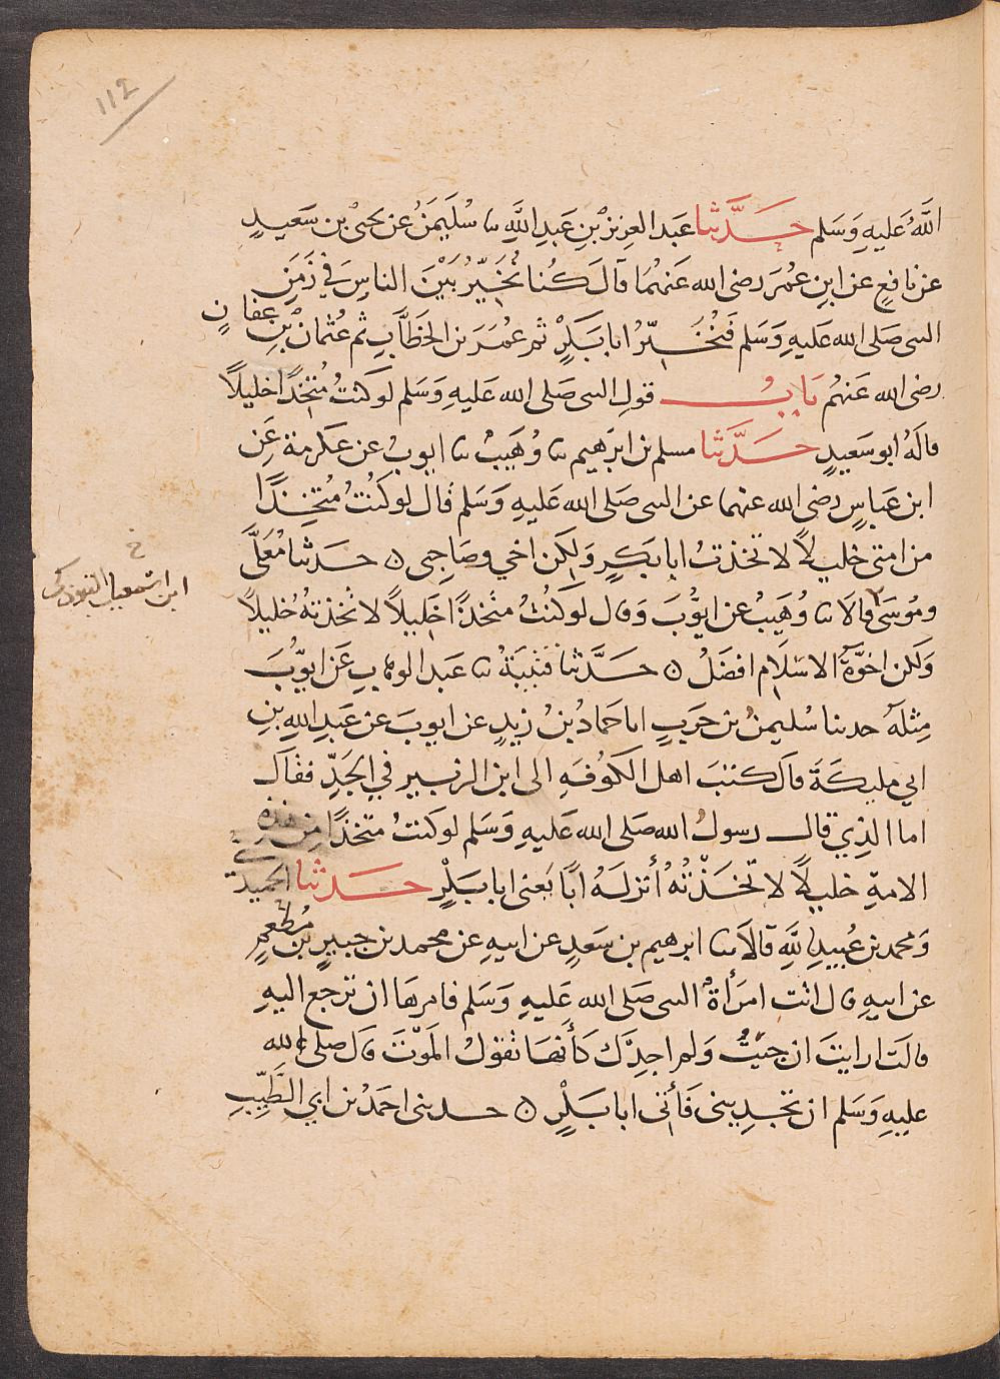 112
اللَّهُ عَلَيهِ وَسَلم حَدَّثَنا عَبد العزيز بْنِ عَبدِ اللَّهِ ثنا سُلَيمَنُ عن يحيى بن سَعيدٍ
عن نافعٍ عن ابنِ عُمَرَ رضى الله عَنهُمَا قالَ كُنا نُخَيِّرُ بَيْنَ الناسِ في زَمَنِ
النبى صَلى الله عَليهِ وَسَلم فَنُخَيِّرُ ابا بَكرٍ ثم عُمَرَ بن الخطَّابِ ثم عُثمان بْنِ عفانٍ
رضى الله عَنهُم بَابُ قولِ النبى صَلى الله عَليهِ وَسَلم لو كنتُ مُتخِذًا خليلًا
قالَهُ ابو سَعيدٍ حَدَّثَنا مسلم بن ابرَهيم ثنا وُهَيبٌ ثنا ايوبُ عن عكرمة عَنِ
ابن عَباسٍ رضى الله عنهما عن النبى صَلى الله عَليهِ وَسَلم قال لو كنتُ مُتخِذًا
من امتى خليلًا لاتخذتُ ابا بَكرٍ وَلكن اخي وصَاحِبى ه حَدثنا مُعَلَّى
ومُوسَى قالَا ثنا وُهَيبٌ عن ايوُّبَ وَقال لَو كنتُ متخذًا خَليلاً لاتخذتهُ خليلاً
وَلكن اخوَّةُ الاسْلَامِ افضلُ ه حَدَّثنا قتيبَةُ ثنا عَبد الوهابِ عَن ايوُّبَ
مِثلهُ حدثنا سُليمنُ بن حَربٍ انا حمادُ بنُ زيدٍ عن ايوبَ عن عَبدِ اللهِ بنِ
ابي مليكَةَ قال كتبَ اهل الكوُفَهِ الى ابن الزبير في الجَدِّ فقال
اما الذِي قال رسولُ الله صَلى الله عَليهِ وَسَلم لو كنتُ متخذًا مِن هَذِهِ
الامةِ خليلًا لاتخَذْتُهُ أنزلهُ ابًا يَعنى ابا بَكرٍ حَدثنا الحميدىّ
وَمحمد بن عُبيدِ اللَّهِ قالَا ثنا ابرهيم بن سَعدٍ عن ابيهِ عن محمد بن جبيرٍ بن مُطعمٍ
عن ابيهِ قال اتت امرَأةٌ النبى صَلى الله عَليهِ وَسَلم فامرهَا ان ترجع اليهِ
قالَت ارايتَ ان جيتُ وَلم اجِدكَ كَأنهَا تقولُ المَوْتَ قال صلى الله
عليهِ وَسَلم ان تجدِينى فَأتى ابا بَكرٍ ه حدثنى احمَدُ بن ابي الطَّيِّبِ
ابن اسمعيل التبوذكى